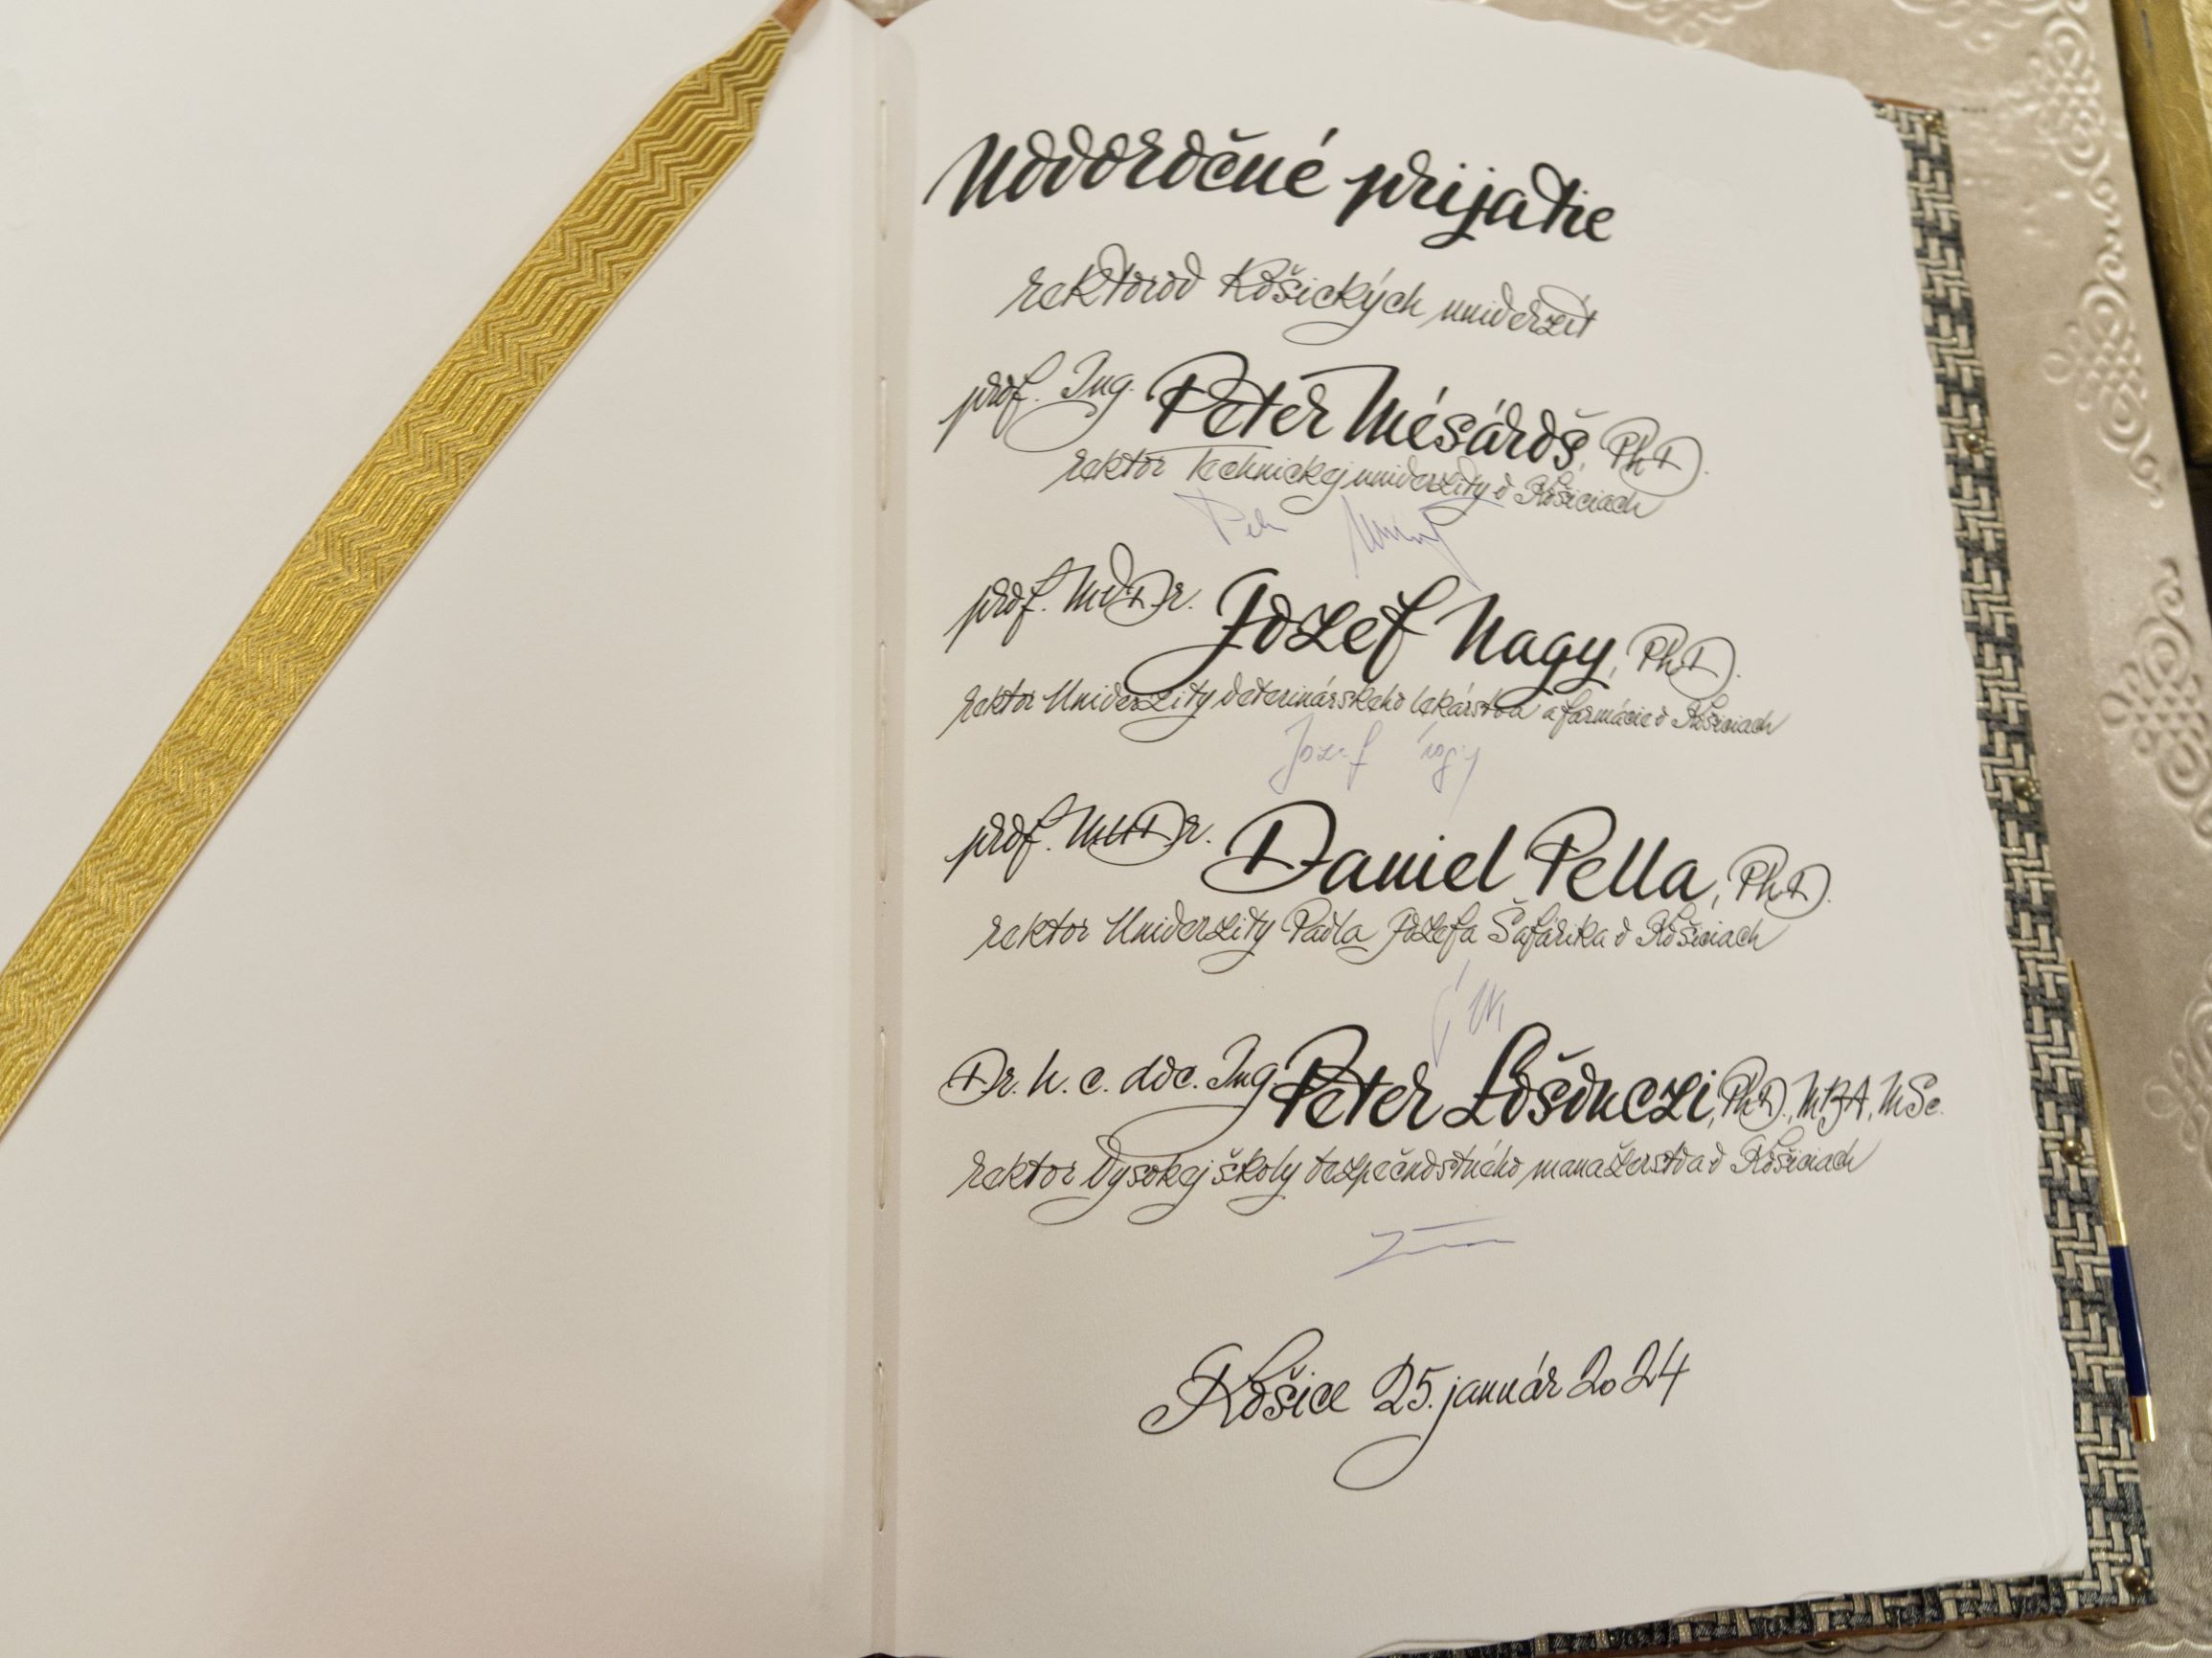 Novoročné prijatie
rektorov Košických univerzít
prof. Ing. Peter Mésároš, PhD.
rektor Technickej univerzity v Košiciach
prof. MVDr. Jozef Nagy, PhD.
rektor Univerzity veterinárskeho lekárstva a farmácie v Košiciach
Jozef Nagy
prof. MUDr. Daniel Pella, PhD.
rektor Univerzity Pavla Jozefa Šafárika v Košiciach
Dr. h. c. doc. Ing. Peter Lošonczi, PhD., MBA, MSc.
rektor Vysokej školy bezpečnostného manažerstva v Košiciach
Košice 25. január 2024